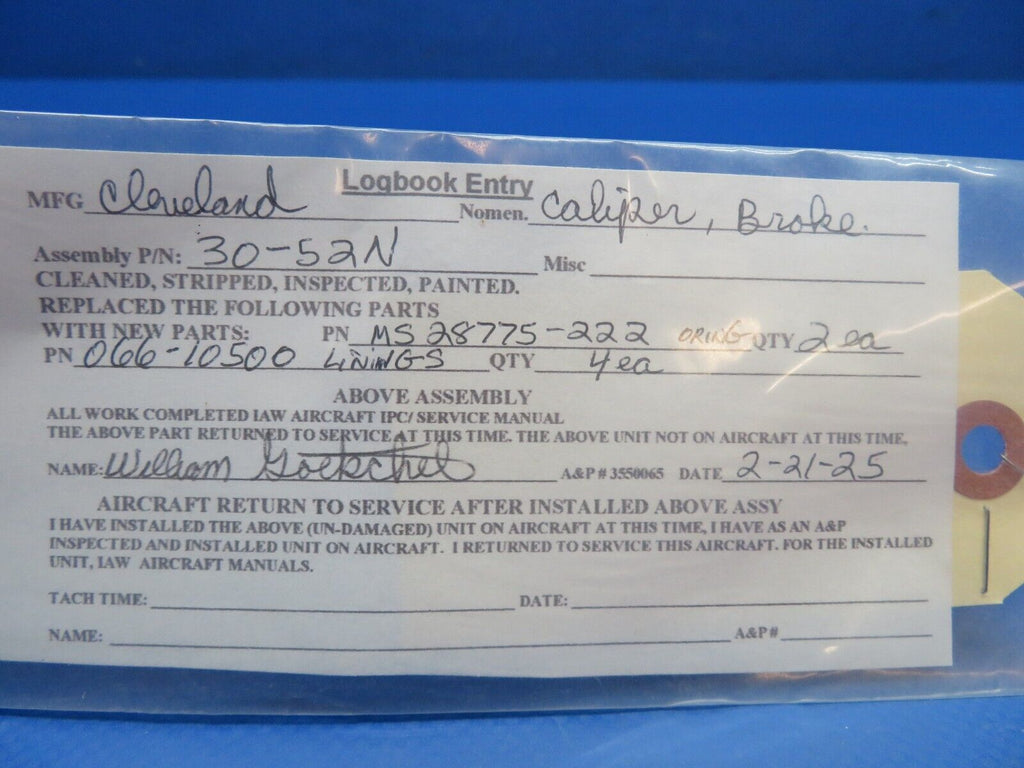 Logbook Entry
MFG Cleveland Nomen. Caliper, Brake.
Assembly P/N: 30-52N Misc
CLEANED, STRIPPED, INSPECTED, PAINTED.
REPLACED THE FOLLOWING PARTS
WITH NEW PARTS: PN MS 28775-222 ORING QTY 2 ea
PN 066-10500 LiNiNGS QTY 4 ea
ABOVE ASSEMBLY
ALL WORK COMPLETED IAW AIRCRAFT IPC/ SERVICE MANUAL
THE ABOVE PART RETURNED TO SERVICE AT THIS TIME. THE ABOVE UNIT NOT ON AIRCRAFT AT THIS TIME,
NAME: William A&P # 3550065 DATE 2-21-25
AIRCRAFT RETURN TO SERVICE AFTER INSTALLED ABOVE ASSY
I HAVE INSTALLED THE ABOVE (UN-DAMAGED) UNIT ON AIRCRAFT AT THIS TIME, I HAVE AS AN A&P
INSPECTED AND INSTALLED UNIT ON AIRCRAFT. I RETURNED TO SERVICE THIS AIRCRAFT. FOR THE INSTALLED
UNIT, IAW AIRCRAFT MANUALS.
TACH TIME: DATE:
NAME: A&P #